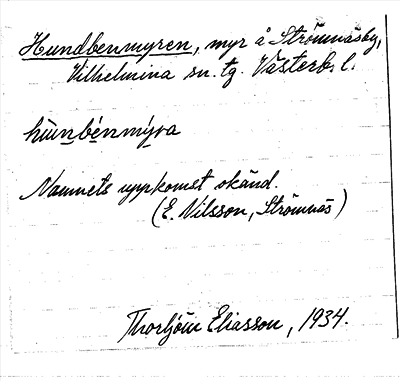 Hundbenmyren, myr å Strömnäsby,
Vilhelmina sn. tg. Västerb. l.
hùnbénmýra
Namnets uppkomst okänd.
(E. Nilsson, Strömnäs)
Thorbjörn Eliasson, 1934.